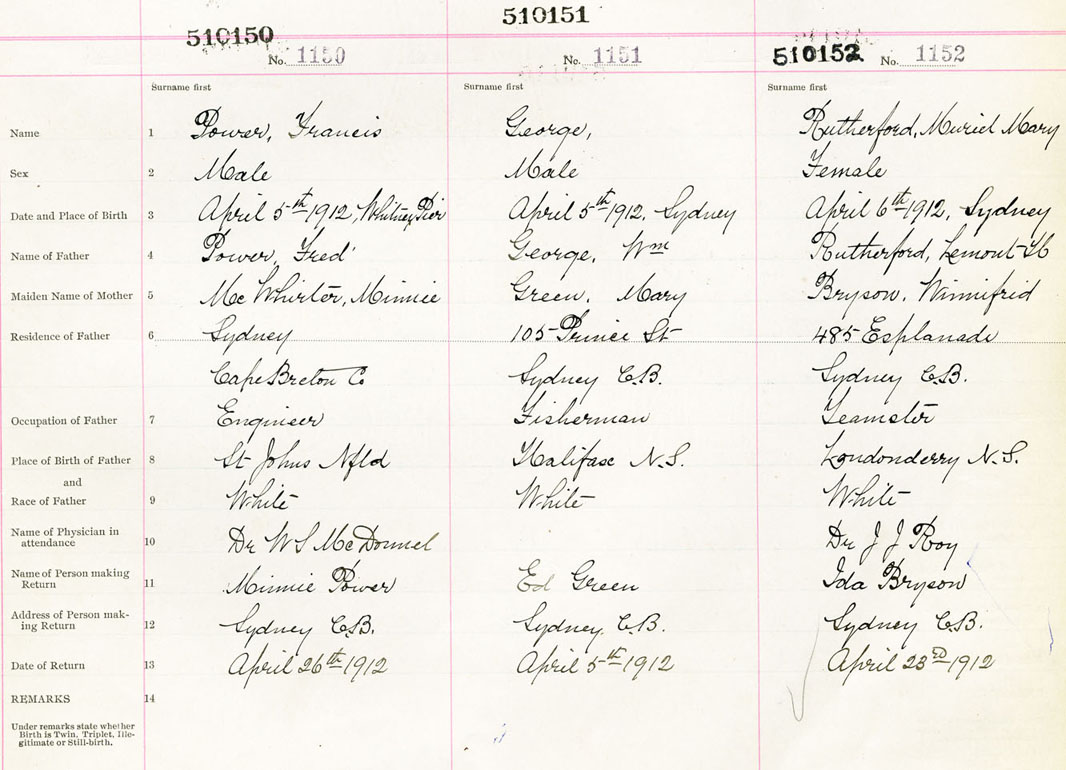 510150 510151 510152
No. 1150 No. 1151 No. 1152
Surname first Surname first Surname first
Name 1 Power, Francis George, Rutherford, Muriel Mary
Sex 2 Male Male Female
Date and Place of Birth 3 April 5th 1912, Whitney Pier April 5th 1912, Sydney April 6th 1912, Sydney
Name of Father 4 Power, Fred George, Wm Rutherford, Lemont
Maiden Name of Mother 5 McWhirter, Minnie Green, Mary Bryson, Winnifrid
Residence of Father 6 Sydney 105 Prince St 485 Esplanade
Cape Breton Co Sydney C.B. Sydney C.B.
Occupation of Father 7 Engineer Fisherman Teamster
Place of Birth of Father 8 St Johns Nfld Halifax N.S. Londonderry N.S.
and
Race of Father 9 White White White
Name of Physician in attendance 10 Dr W S McDonnel Dr J J Roy
Name of Person making Return 11 Minnie Power Ed Green Ida Bryson
Address of Person mak-ing Return 12 Sydney C.B. Sydney C.B. Sydney C.B.
Date of Return 13 April 26th 1912 April 5th 1912 April 23rd 1912
REMARKS 14
Under remarks state whether
Birth is Twin, Triplet, Ille-
gitimate or Still-birth.